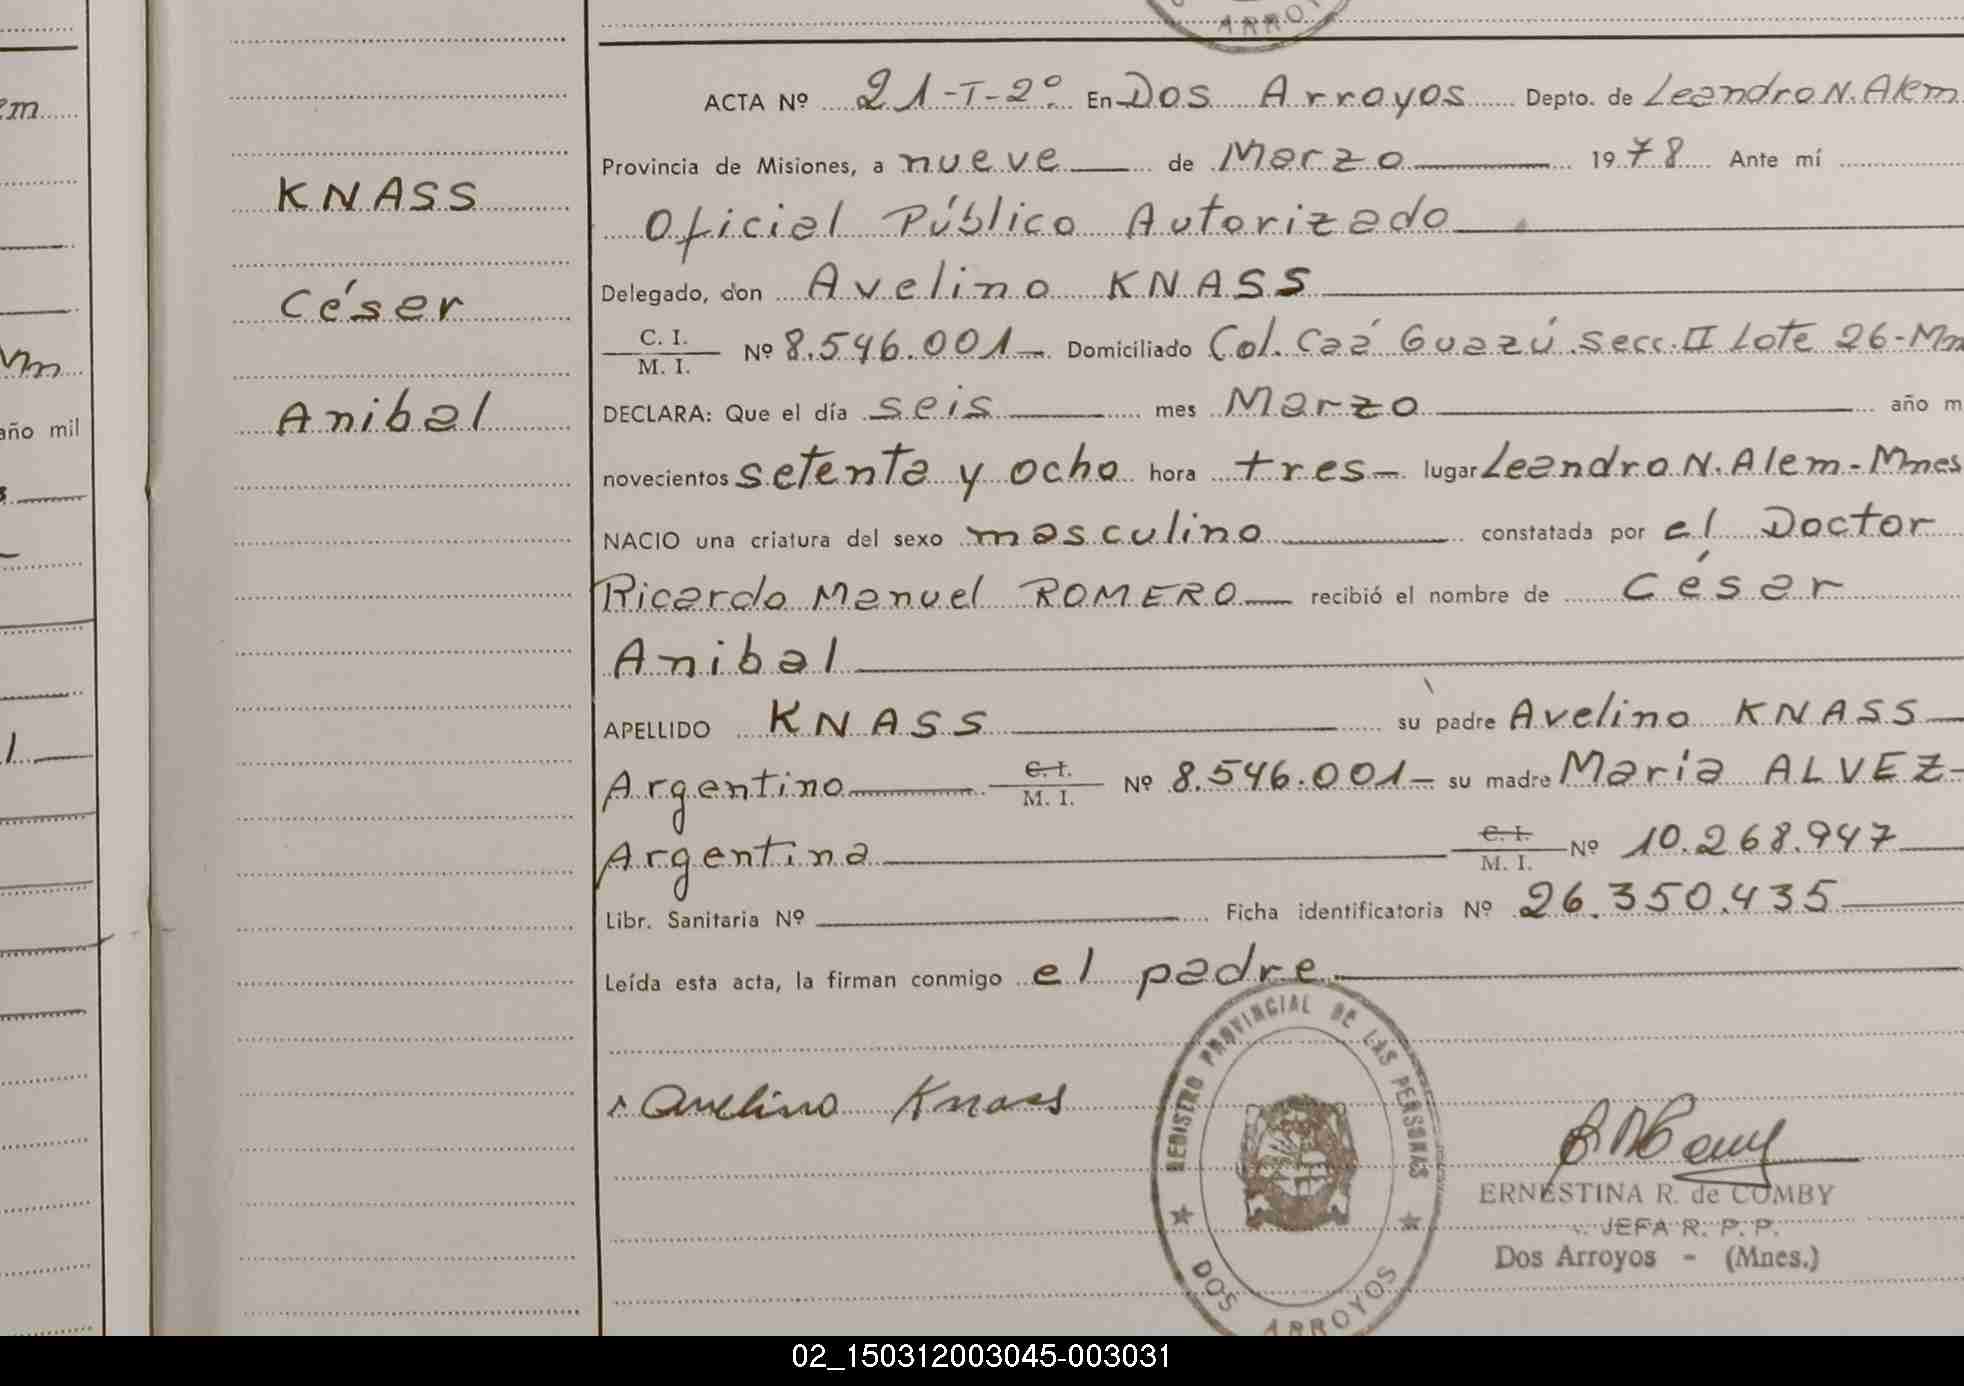 ARROY
ACTA Nº 21-T-2º En Dos Arroyos Depto. de Leandro N. Alem
Provincia de Misiones, a nueve de Marzo 1978 Ante mí
Oficial Público Autorizado
Delegado, don Avelino KNASS
C. I.
M. I. Nº 8.546.001 Domiciliado Col. Caá Guazú secc. II Lote 26-Mn
DECLARA: Que el día seis mes Marzo año m
novecientos setenta y ocho hora tres lugar Leandro N. Alem - Mnes
NACIO una criatura del sexo masculino constatada por el Doctor
Ricardo Manuel ROMERO recibió el nombre de César
Anibal
APELLIDO KNASS su padre Avelino KNASS
Argentino C. I. M. I. Nº 8.546.001 su madre María ALVEZ
Argentina C. I. M. I. Nº 10.268.947
Libr. Sanitaria Nº Ficha identificatoria Nº 26.350.435
Leída esta acta, la firman conmigo el padre
Avelino Knass
REGISTRO PROVINCIAL DE LAS PERSONAS
DOS ARROYOS
ERNESTINA R. de COMBY
JEFA R. P. P.
Dos Arroyos - (Mnes.)
KNASS
Céser
Anibal
año mil
02_150312003045-003031